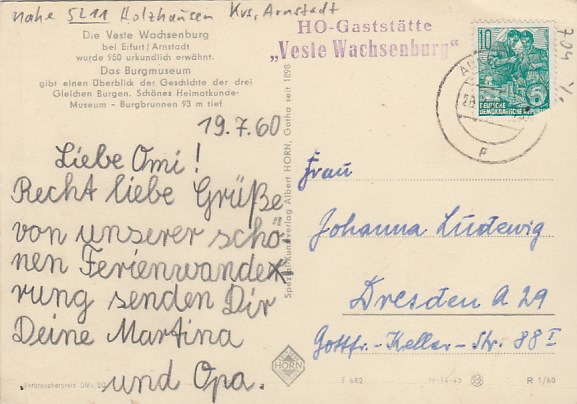 nahe 5211 Holzhausen Krs. Arnstadt
Die Veste Wachsenburg
bei Erfurt/Arnstadt
wurde 950 urkundlich erwähnt.
Das Burgmuseum
gibt einen Überblick der Geschichte der drei
Gleichen Burgen. Schönes Heimatkunde-
Museum - Burgbrunnen 93 m tief
HO-Gaststätte
„Veste Wachsenburg“
10
5
DEUTSCHE
DEMOKRATISCHE REPUBLIK
19.7.60
Liebe Omi!
Recht liebe Grüße
von unserer schö-
nen Ferienwande-
rung senden Dir
Deine Martina
und Opa.
Spezial-Kunstverlag Albert HORN, Gotha seit 1898
Frau
Johanna Ludewig
Dresden A 29
Gottfr.-Keller-Str. 88 I
HORN
F 682
R 1/60